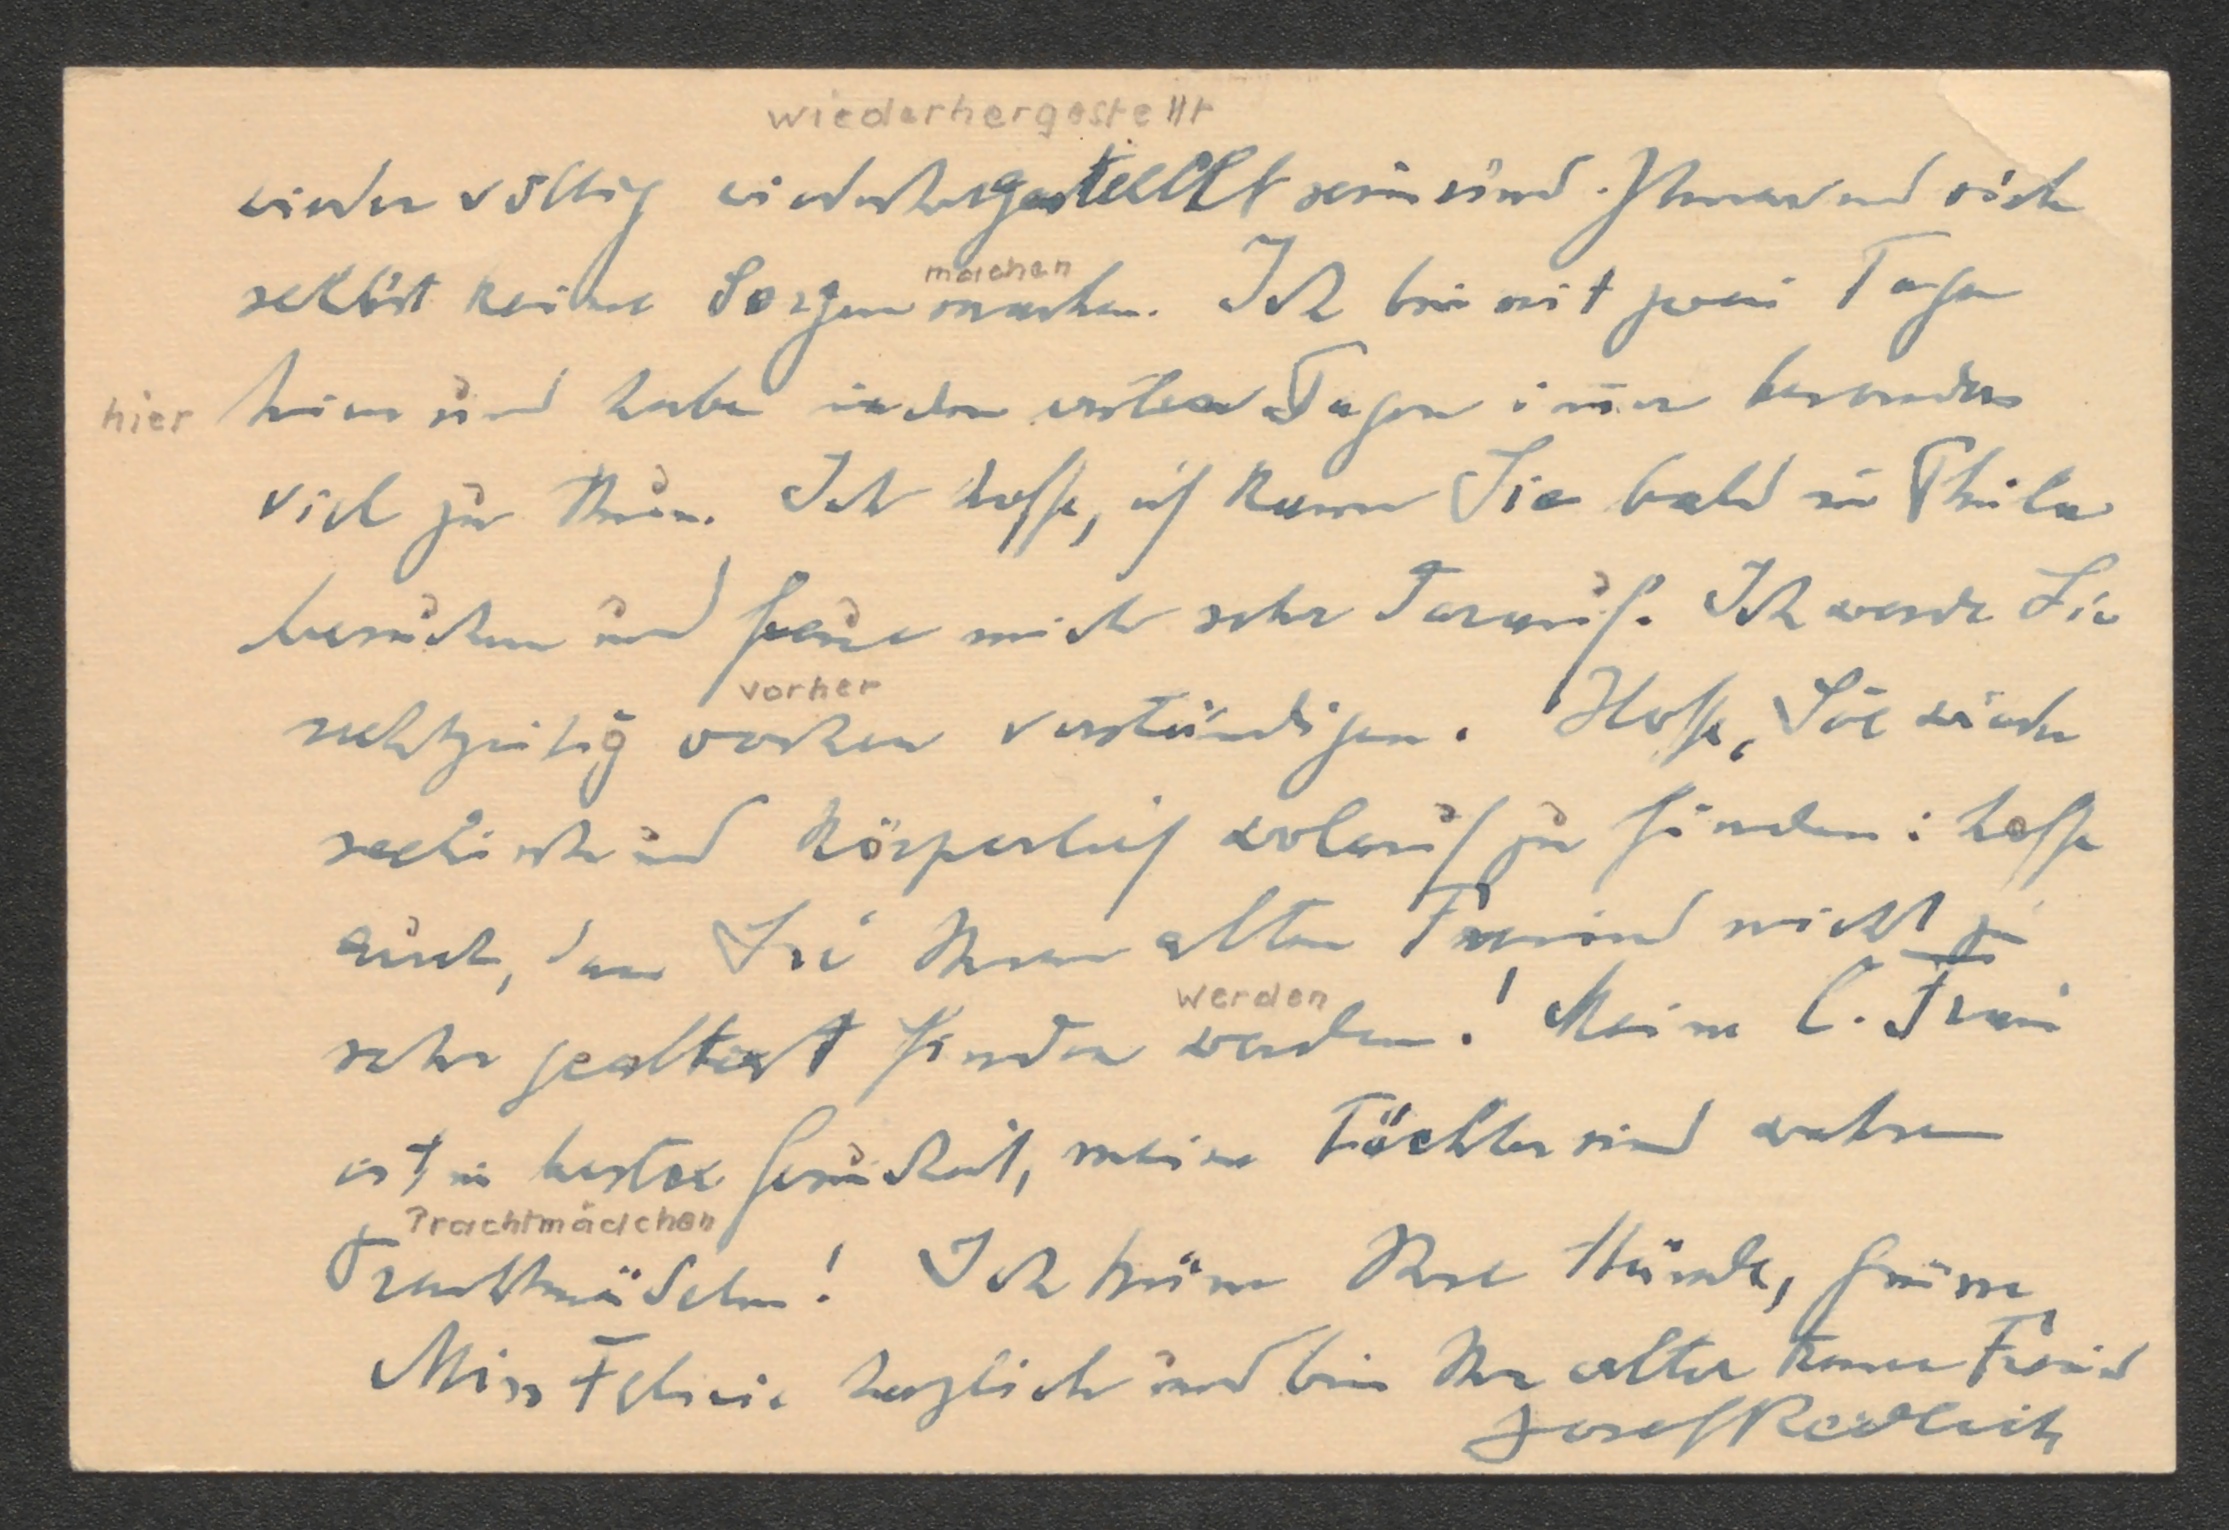 wiederhergestellt
wieder völlig wiederhergestellt sein und Ihnen und sich
machen
selbst keine Sorgen machen. Ich bin seit zwei Tagen
hier
hier und habe in den ersten Tagen im̄er besonders
viel zu thun. Ich hoffe, ich kann Sie bald in Phila
besuchen und freue mich sehr darauf. Ich werde Sie
vorher
rechtzeitig vorher verständigen. Hoffe, Sie wieder
seelisch und körperlich wolauf zu finden: hoffe
auch, dass Sie Ihren alten Freund nicht zu
werden
sehr gealtert finden werden! Meine l. Frau
ist in bester Gesundheit, meine Töchter sind wahre
Prachtmädchen
Prachtmädchen! Ich küsse Ihre Hände, grüsse
Miss herzlich und bin Ihr alter treuer Freund
Josef Redlich